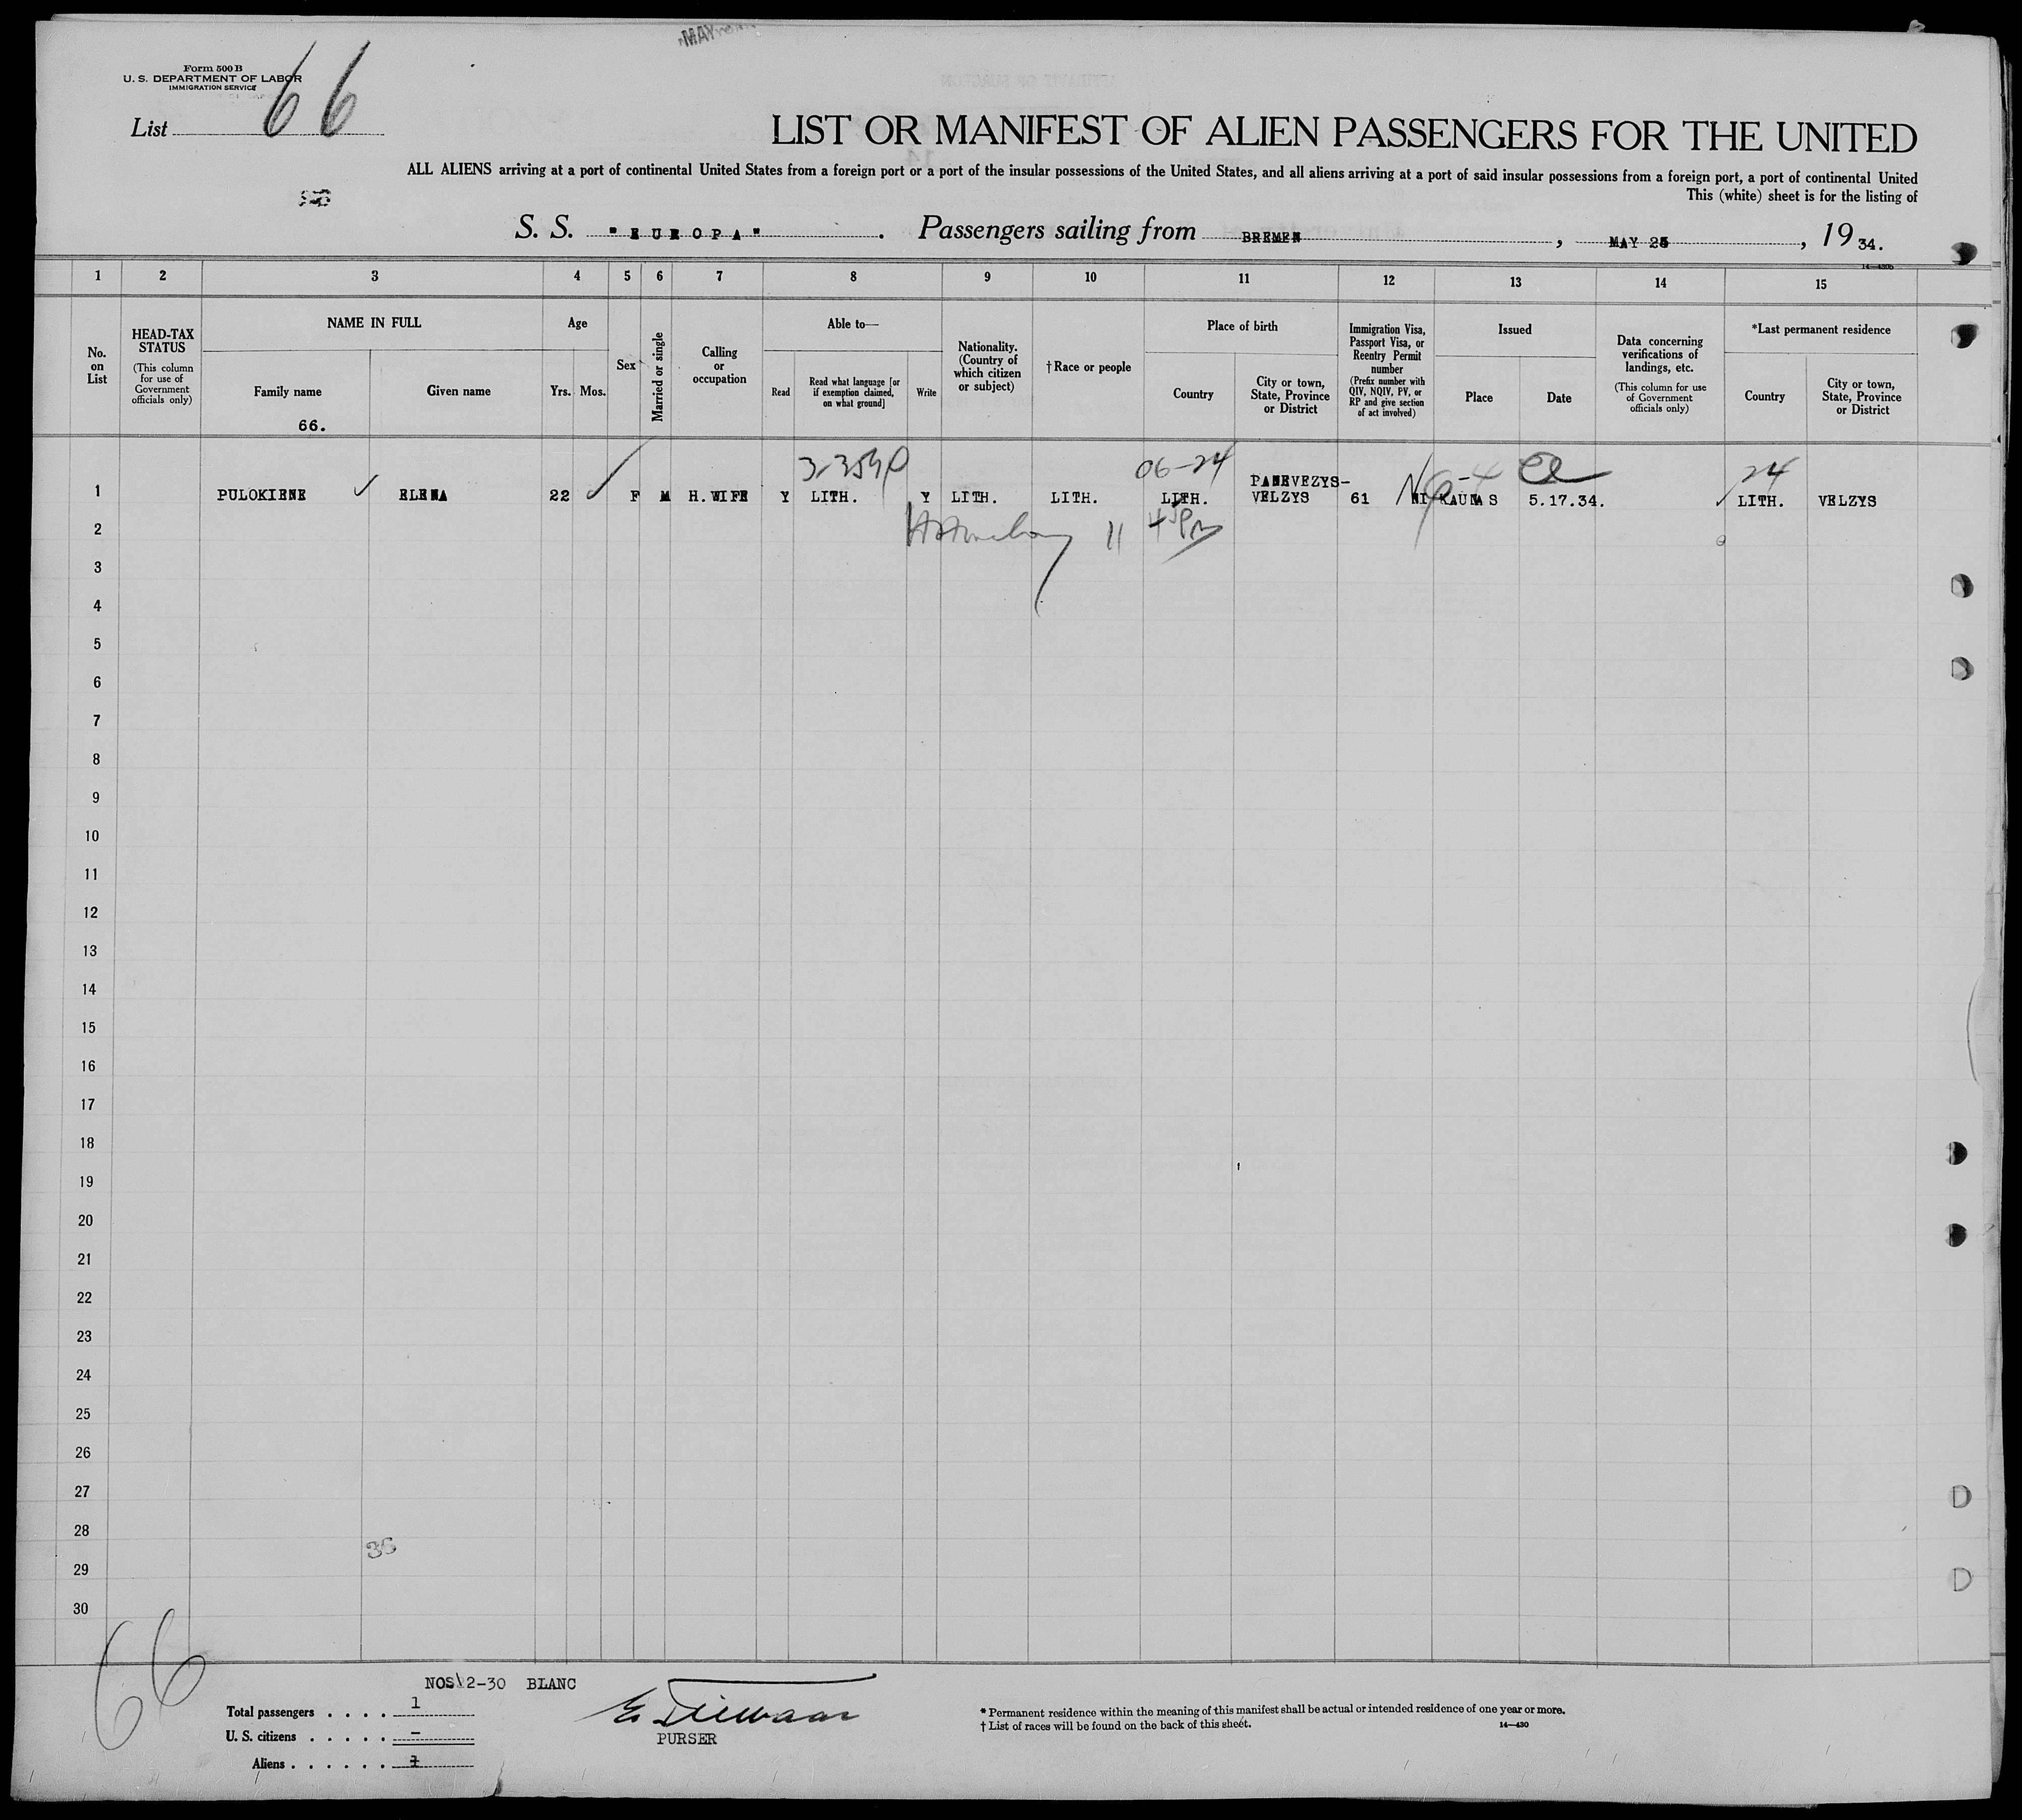 MAY
Form 500 B
U. S. DEPARTMENT OF LABOR
IMMIGRATION SERVICE
List 66
LIST OR MANIFEST OF ALIEN PASSENGERS FOR THE UNITED
ALL ALIENS arriving at a port of continental United States from a foreign port or a port of the insular possessions of the United States, and all aliens arriving at a port of said insular possessions from a foreign port, a port of continental United
This (white) sheet is for the listing of
S. S. "EUROPA". Passengers sailing from BREMEN, MAY 25, 19 34.
1 2 3 4 5 6 7 8 9 10 11 12 13 14 15
No. on List
HEAD-TAX STATUS (This column for use of Government officials only)
NAME IN FULL
Family name
66.
Given name
Age
Yrs. Mos.
Sex
Married or single
Calling or occupation
Able to—
Read
Read what language [or if exemption claimed, on what ground]
Write
Nationality. (Country of which citizen or subject)
†Race or people
Place of birth
Country
City or town, State, Province or District
Immigration Visa, Passport Visa, or Reentry Permit number (Prefix number with QIV, NQIV, PV, or RP and give section of act involved)
Issued
Place
Date
Data concerning verifications of landings, etc. (This column for use of Government officials only)
*Last permanent residence
Country
City or town, State, Province or District
06-24 24
1 PULOKIENE ELENA 22 F M H.WIFE Y LITH. Y LITH. LITH. LITH. PANEVEZYS-VELZYS 61 KAUNAS 5.17.34. LITH. VELZYS
2
3
4
5
6
7
8
9
10
11
12
13
14
15
16
17
18
19
20
21
22
23
24
25
26
27
28
29
30
36
66
NOS 2-30 BLANC
Total passengers . . . . 1
U. S. citizens . . . . . –
Aliens . . . . . . 1
PURSER
* Permanent residence within the meaning of this manifest shall be actual or intended residence of one year or more.
† List of races will be found on the back of this sheet.
14—430